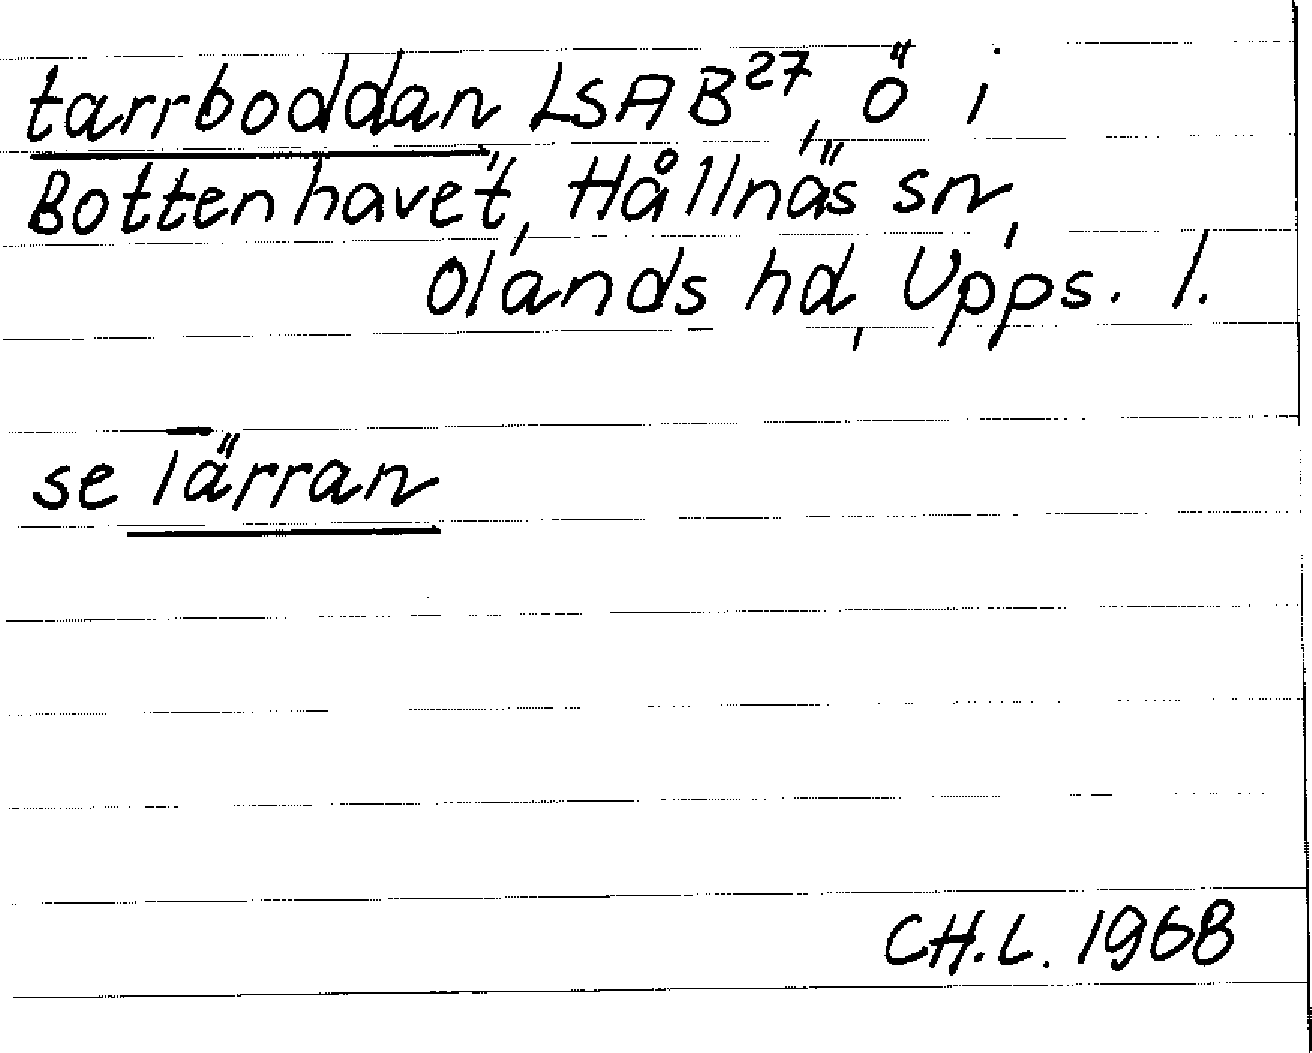 tarrboddan LSA B27, ö i
Bottenhavet, Hållnäs sn,
Olands hd, Upps. l.
se Tärran
CH.L. 1968